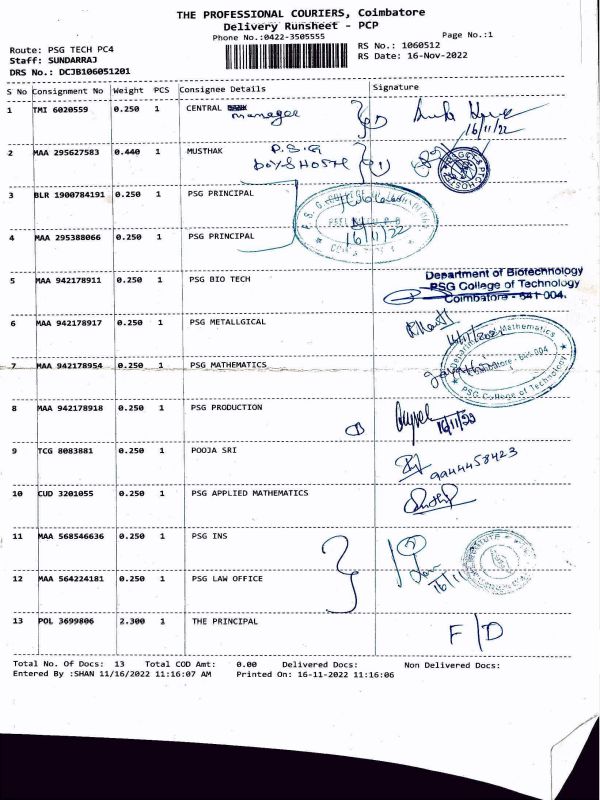 THE PROFESSIONAL COURIERS, Coimbatore
Delivery Runsheet - PCP
Phone No.:0422-3505555
Page No.:1
Route: PSG TECH PC4
RS No.: 1060512
Staff: SUNDARRAJ
RS Date: 16-Nov-2022
DRS No.: DCJB106051201
S No Consignment No Weight PCS Consignee Details Signature
1 TMI 6020559 0.250 1 CENTRAL
manager
16/11/22
2 MAA 295627583 0.440 1 MUSTHAK P.S.G
BOYS HOSTEL (1)
3 BLR 1900784191 0.250 1 PSG PRINCIPAL
4 MAA 295388066 0.250 1 PSG PRINCIPAL
16/11/22
5 MAA 942178911 0.250 1 PSG BIO TECH
Department of Biotechnology
PSG College of Technology
Coimbatore - 641 004.
6 MAA 942178917 0.250 1 PSG METALLGICAL
Department of Mathematics
7 MAA 942178954 0.250 1 PSG MATHEMATICS
Coimbatore - 641 004
PSG College of Technology
8 MAA 942178918 0.250 1 PSG PRODUCTION
16/11/22
9 TCG 8083881 0.250 1 POOJA SRI
9944458423
10 CUD 3201055 0.250 1 PSG APPLIED MATHEMATICS
11 MAA 568546636 0.250 1 PSG INS
12 MAA 564224181 0.250 1 PSG LAW OFFICE
16/11
13 POL 3699806 2.300 1 THE PRINCIPAL
F/D
Total No. Of Docs: 13 Total COD Amt: 0.00 Delivered Docs: Non Delivered Docs:
Entered By :SHAN 11/16/2022 11:16:07 AM Printed On: 16-11-2022 11:16:06